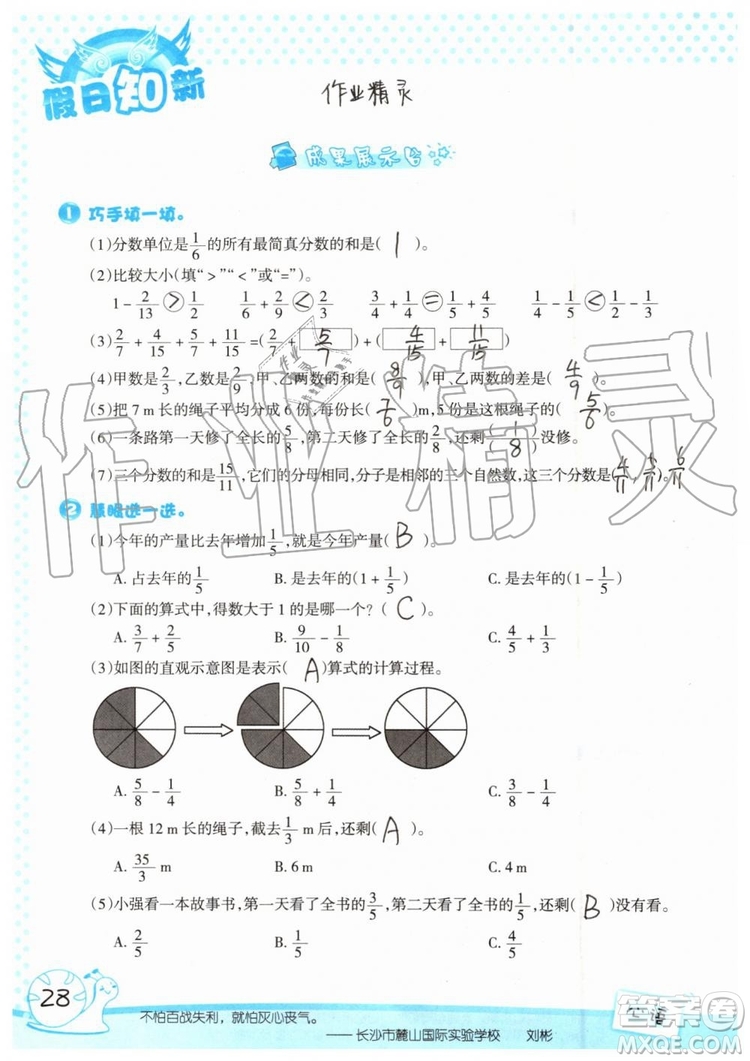 假日知新
作业精灵
成果展示台
1 巧手填一填。
(1)分数单位是1/6的所有最简真分数的和是( 1 )。
(2)比较大小(填“>”“<”或“=”)。
1-2/13 > 1/2 1/6+2/9 < 2/3 3/4+1/4 = 1/5+4/5 1/4-1/5 < 1/2-1/3
(3)2/7+4/15+5/7+11/15=(2/7+5/7)+(4/15+11/15)
(4)甲数是2/3,乙数是2/9,甲、乙两数的和是( 8/9 ),甲、乙两数的差是( 4/9 )。
(5)把7 m长的绳子平均分成6份,每份长( 7/6 )m,5份是这根绳子的( 5/6 )。
(6)一条路第一天修了全长的5/8,第二天修了全长的2/8,还剩( 1/8 )没修。
(7)三个分数的和是15/11,它们的分母相同,分子是相邻的三个自然数,这三个分数是( 4/11, 5/11, 6/11 )。
2 慧眼选一选。
(1)今年的产量比去年增加1/5,就是今年产量( B )。
A. 占去年的1/5 B. 是去年的(1+1/5) C. 是去年的(1-1/5)
(2)下面的算式中,得数大于1的是哪一个?( C )
A. 3/7+2/5 B. 9/10-1/8 C. 4/5+1/3
(3)如图的直观示意图是表示( A )算式的计算过程。
A. 5/8-1/4 B. 5/8+1/4 C. 3/8-1/4
(4)一根12 m长的绳子,截去1/3 m后,还剩( A )。
A. 35/3 m B. 6 m C. 4 m
(5)小强看一本故事书,第一天看了全书的3/5,第二天看了全书的1/5,还剩( B )没有看。
A. 2/5 B. 1/5 C. 4/5
28
不怕百战失利,就怕灰心丧气。
——长沙市麓山国际实验学校 刘彬
答案圈
MXQE.COM